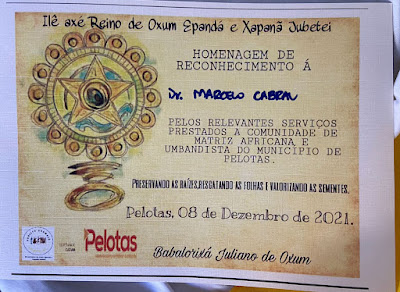 Ilê axé Reino de Oxum Epanda e Xapanã Jubetei
HOMENAGEM DE
RECONHECIMENTO Á
Dr. MARCELO CABRAL
PELOS RELEVANTES SERVIÇOS
PRESTADOS A COMUNIDADE DE
MATRIZ AFRICANA E
UMBANDISTA DO MUNICIPIO DE
PELOTAS.
PRESERVANDO AS RAÍZES,RESGATANDO AS FOLHAS E VALORIZANDO AS SEMENTES.
Pelotas, 08 de Dezembro de 2021.
Pelotas
Babalorixá Juliano de Oxum